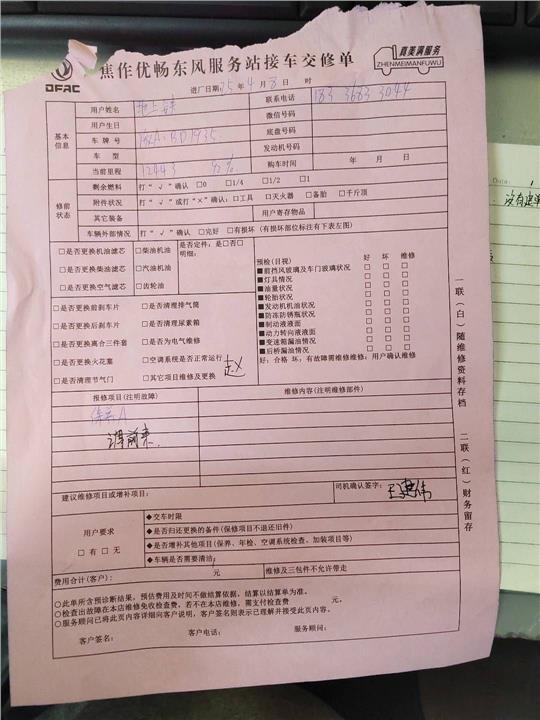 焦作优畅东风服务站接车交修单
DFAC
真美满服务
ZHENMEIMANFUWU
进厂日期: 25 年 4 月 8 日 时
用户姓名
联系电话 183 3683 3044
基本信息
用户生日
微信号码
车牌号
底盘号码
车型
发动机号码
当前里程 12443 92%
购车时间 年 月 日
修前状态
剩余燃料 打“√”确认 □0 □1/4 □1/2 □1
附件状况 打“√”或打“×”确认: □工具 □灭火器 □备胎 □千斤顶
其它装备 用户寄存物品
车辆外部情况 打“√”确认 □完好 □有损坏 (有损坏部位标注有下表左图)
□是否更换机油滤芯 □柴油机油 是否定件: 是□否□
明细:
□是否更换柴油滤芯 □汽油机油
□是否更换空气滤芯 □齿轮油
□是否更换前刹车片 □是否清理排气筒
□是否更换后刹车片 □是否清理尿素箱
□是否更换离合三件套 □是否为电气维修
□是否更换火花塞 □空调系统是否正常运行
□是否清理节气门 □其它项目维修及更换
预检(目视) 好 坏 维修
■前挡风玻璃及车门玻璃状况 □ □ □
■灯具情况 □ □ □
■油量状况 □ □ □
■轮胎状况 □ □ □
■发动机机油状况 □ □ □
■防冻防锈瓶状况 □ □ □
■制动液液面 □ □ □
■动力转向液液面 □ □ □
■变速箱漏油情况 □ □ □
■后桥漏油情况 □ □ □
好: 合格 坏: 有故障需维修维修: 用户确认维修
报修项目(注明故障)
维修内容(注明维修部件)
保养A
建议维修项目或增补项目:
司机确认签字: 王建伟
用户要求
□ 有 □ 无
◆交车时限
◆是否归还更换的备件(保修项目不退还旧件)
◆是否增补其他项目(保养、年检、空调系统检查、加装项目等)
◆车辆是否需要清洁:
费用合计(客户): 元
维修及三包件不允许带走
○此单所含预诊断结果, 预估费用及时间不做结算依据, 结算以结算单为准。
○检查出故障在本店维修免收检查费, 若不在本店维修, 需支付检查费 元。
○服务顾问已将此页内容详细向客户说明, 客户签名则表示已理解并接受此页内容。
客户签名: 客户电话: 服务顾问:
一联(白)随维修资料存档
二联(红)财务留存
Date: